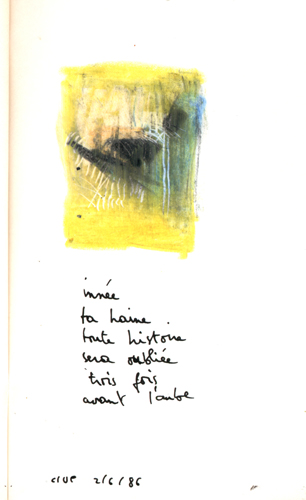 innée
ta haine.
toute histoire
sera oubliée
trois fois
avant l'aube
2/6/86